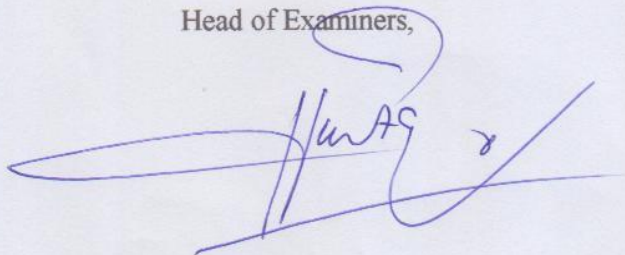 Head of Examiners,